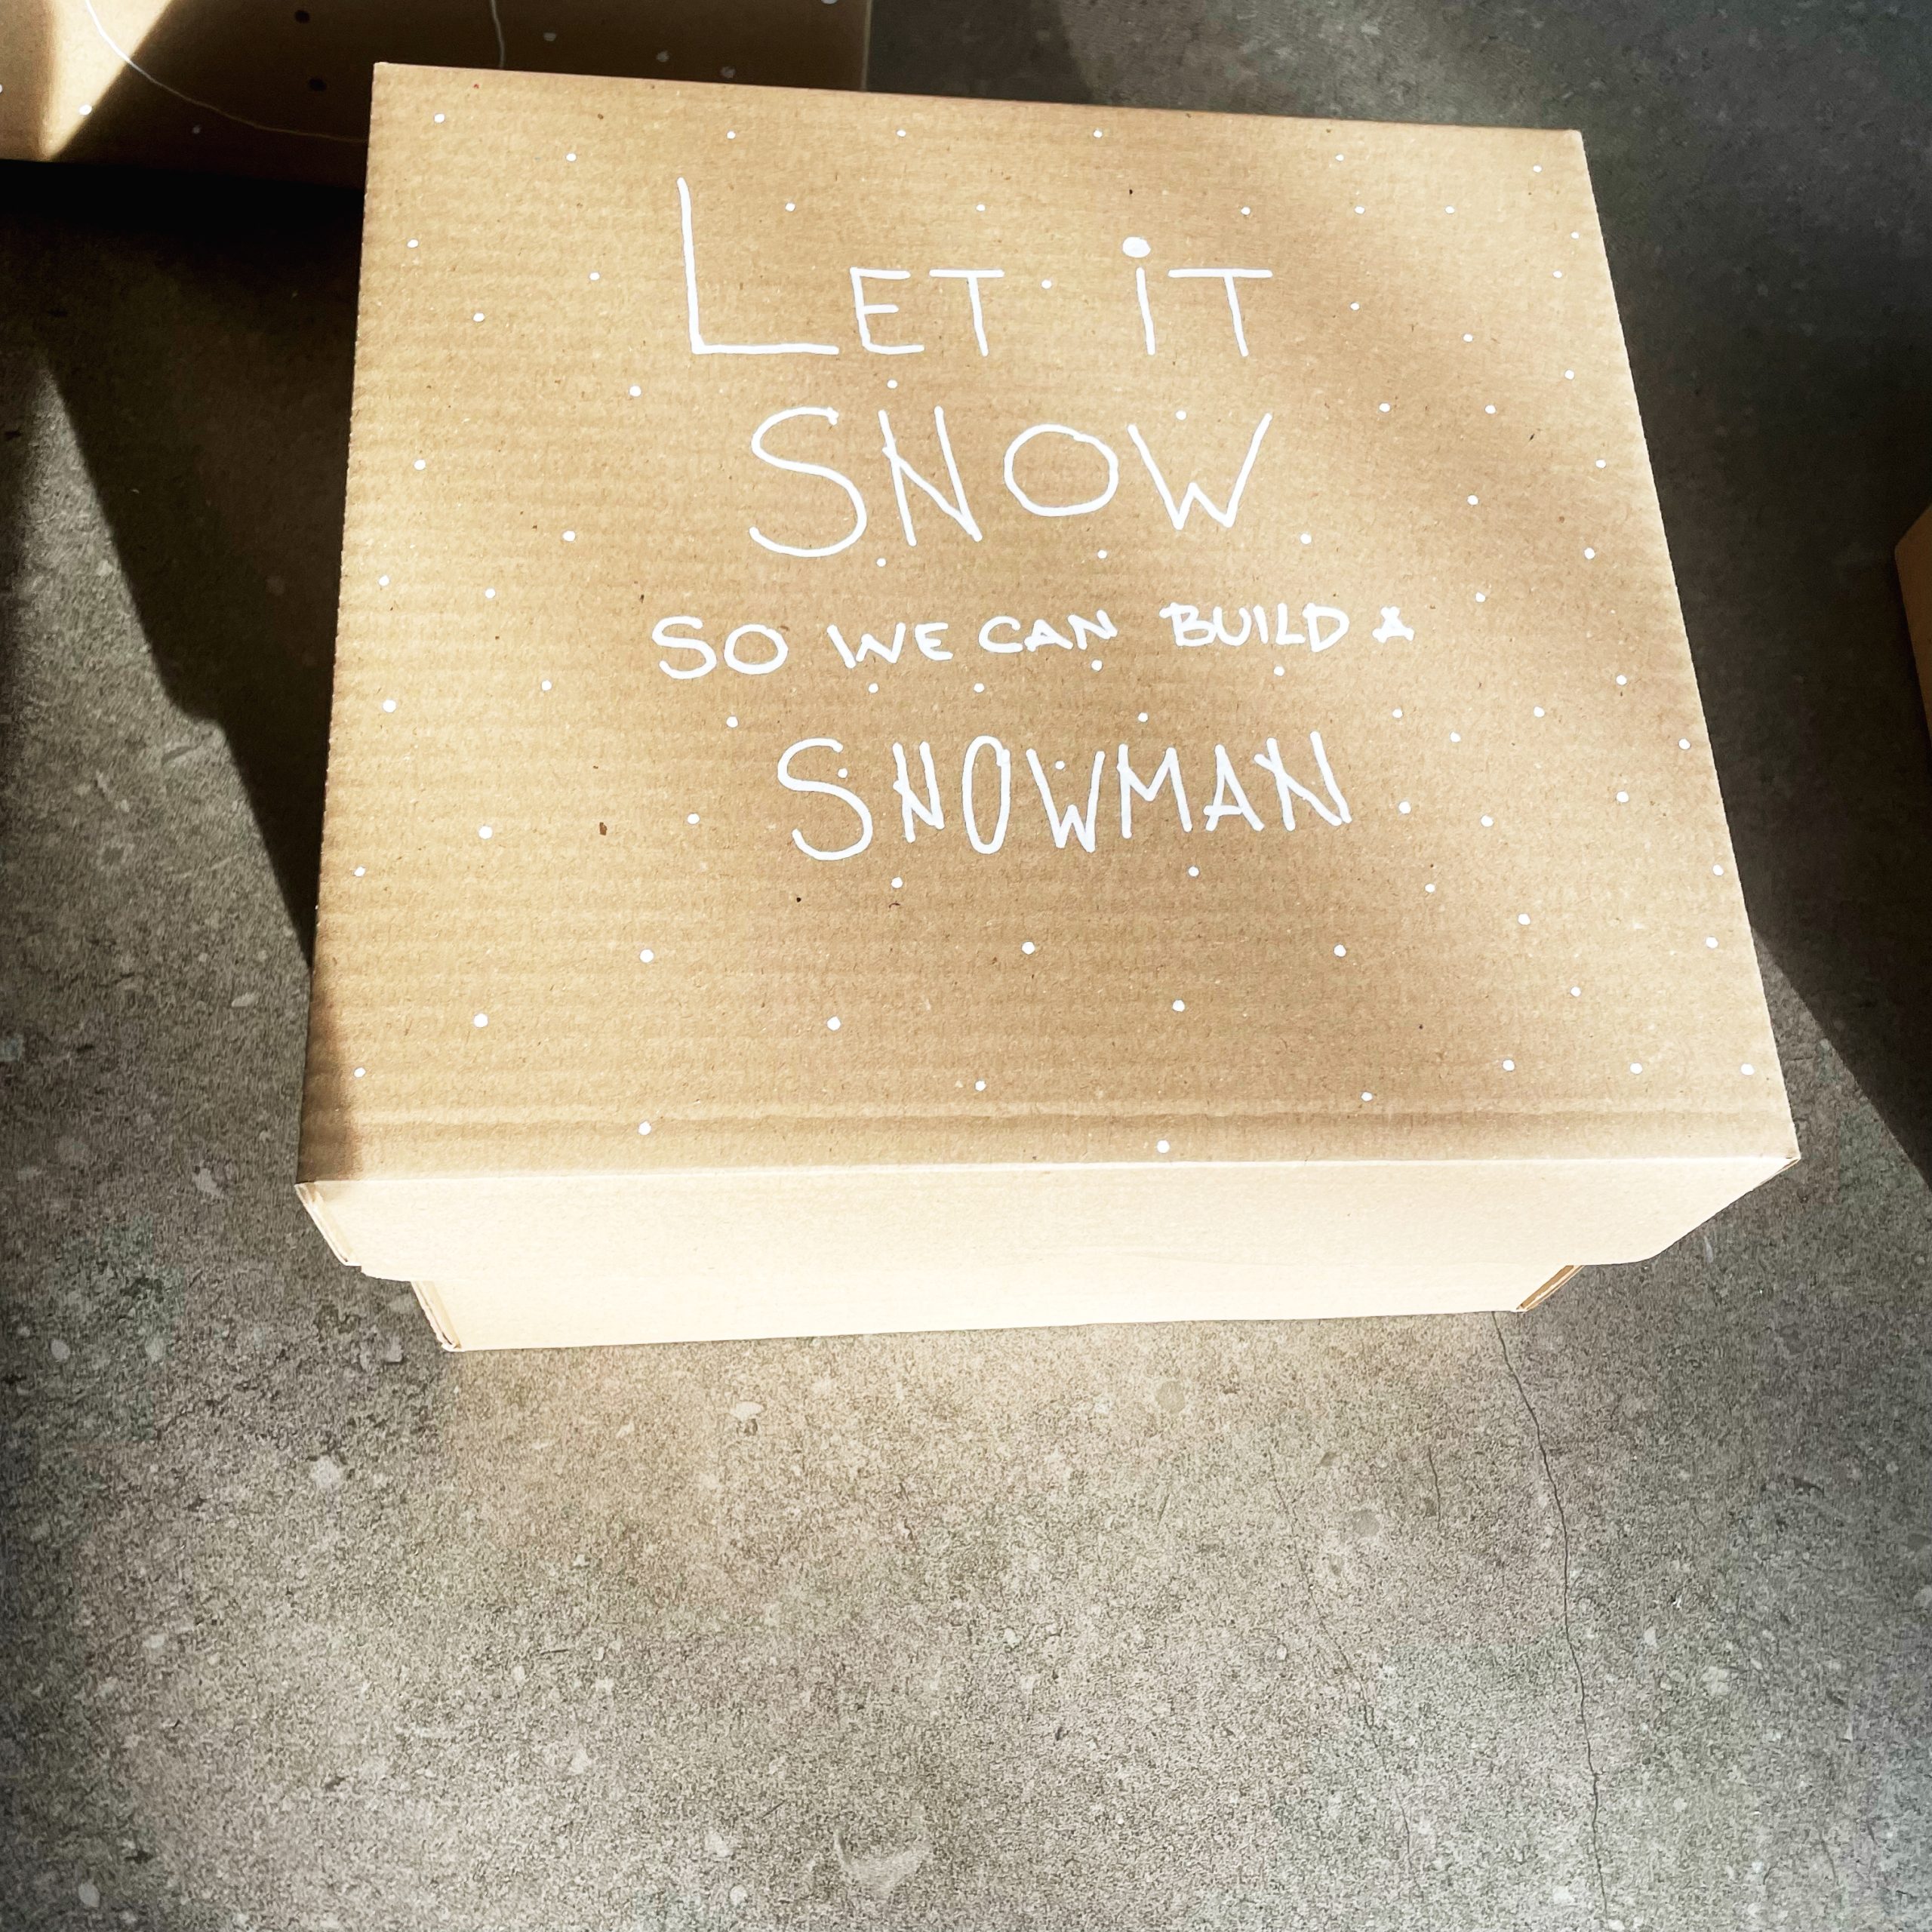 LET iT
SNOW
SO WE CAN BUILD A
SNOWMAN